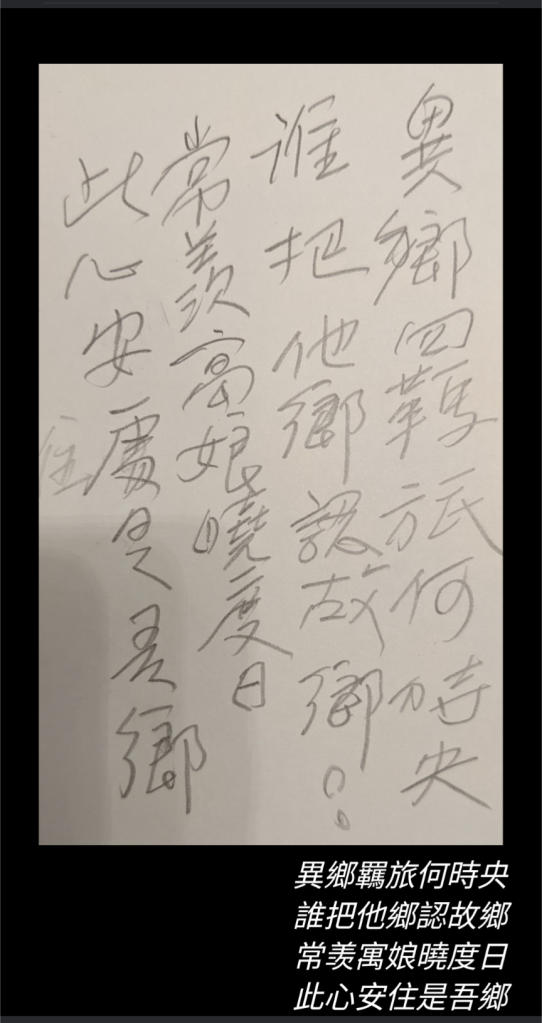 異鄉羈旅何時央
誰把他鄉認故鄉?
常羨寓娘曉度日
此心安處是吾鄉
住
異鄉羈旅何時央
誰把他鄉認故鄉
常羨寓娘曉度日
此心安住是吾鄉